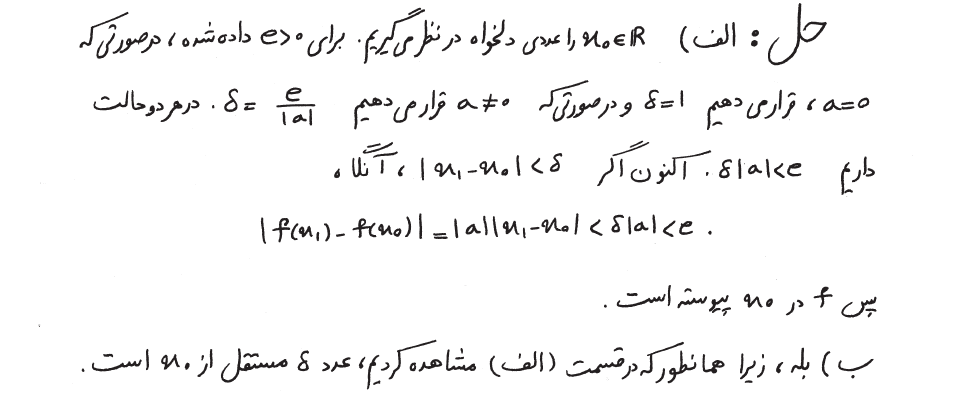 حل : الف) x₀∈ℝ را عددی دلخواه در نظر می‌گیریم. برای e>0 داده شده، درصورتی که
a=0، قرار می دهیم δ=1 و درصورتی که a≠0 قرار می دهیم δ= e/|a| . درهر دو حالت
داریم δ|a|<e . اکنون اگر |x₁-x₀|<δ ، آنگاه
|f(x₁)-f(x₀)|=|a||x₁-x₀|<δ|a|<e .
پس f در x₀ پیوسته است .
ب) بله، زیرا همانطور که در قسمت (الف) مشاهده کردیم، عدد δ مستقل از x₀ است .